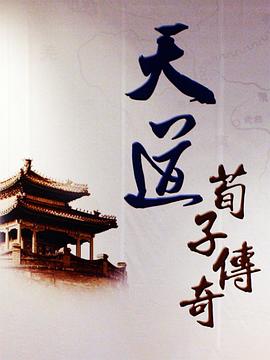 天道
荀子傳奇